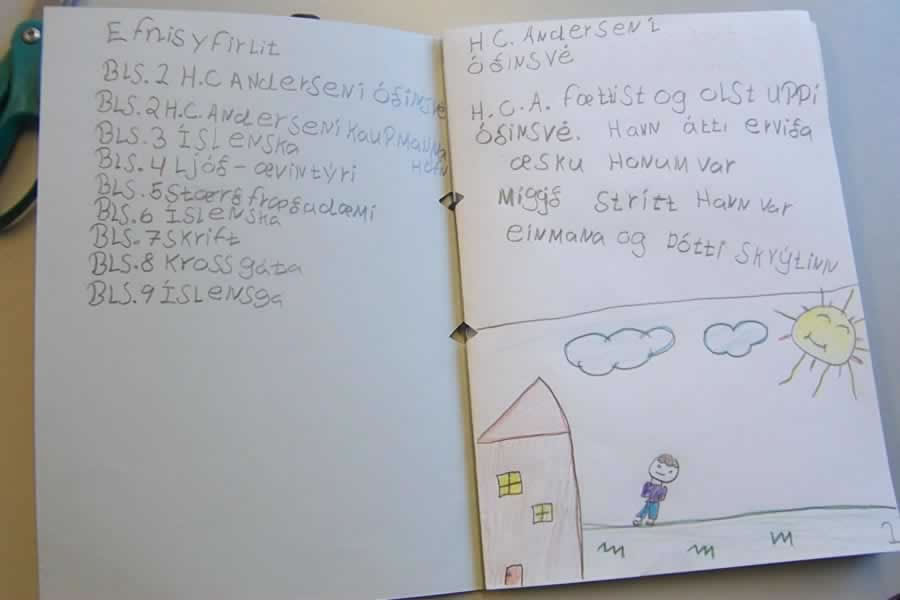 Efnisyfirlit
BLS.1 H.C Andersen í Óðinsvé
BLS.2 H.C. Andersen í Kaupmanna
Höfn
BLS.3 ÍSLENSKA
BLS.4 Ljóð - ævintýri
BLS.5 Stærðfræðidæmi
BLS.6 ÍSLENSKA
BLS.7 Skrift
BLS.8 Krossgáta
BLS.9 ÍSLENSGA
H C. Andersen í
Óðinsvé
H.C.A. fættist og olst uppi
Óðinsvé. Hann átti erviða
æsku Honum var
Miggð strítt Hann var
einmana og Þótti skrýtinn
1